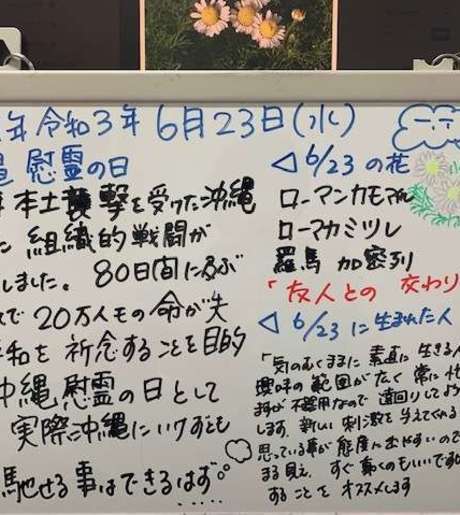 年 令和3年 6月23日(水)
慰霊の日
本土襲撃を受けた沖縄
組織的戦闘が
しました。80日間に及ぶ
で20万人もの命が失
和を祈念することを目的
沖縄慰霊の日として
実際沖縄にいけずとも
馳せる事はできるはず。
◁ 6/23の花
ローマンカモマイル
ローマカミツレ
羅馬加密列
「友人との交わり
◁ 6/23に生まれた人
「気のむくままに素直に生きる人
趣味の範囲が広く常に
すが不器用なので遠回りしてしま
します。新しい刺激を与えてくれる
思っている事が態度に出やすいので
まる見え、すぐ動くのもいいですが
することをオススメします